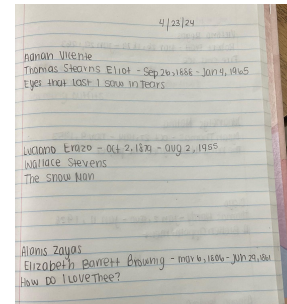 4/23/24
Adnan Vicente
Thomas Stearns Eliot - Sep 26, 1888 - Jan 4, 1965
Eyes that last I saw in Tears
Luciano Erazo - Oct 2, 1879 - Aug 2, 1955
Wallace Stevens
The Snow Man
Alanis Zayas
Elizabeth Barrett Browning - mar 6, 1806 - Jun 29, 1861
How DO I LOVE Thee?